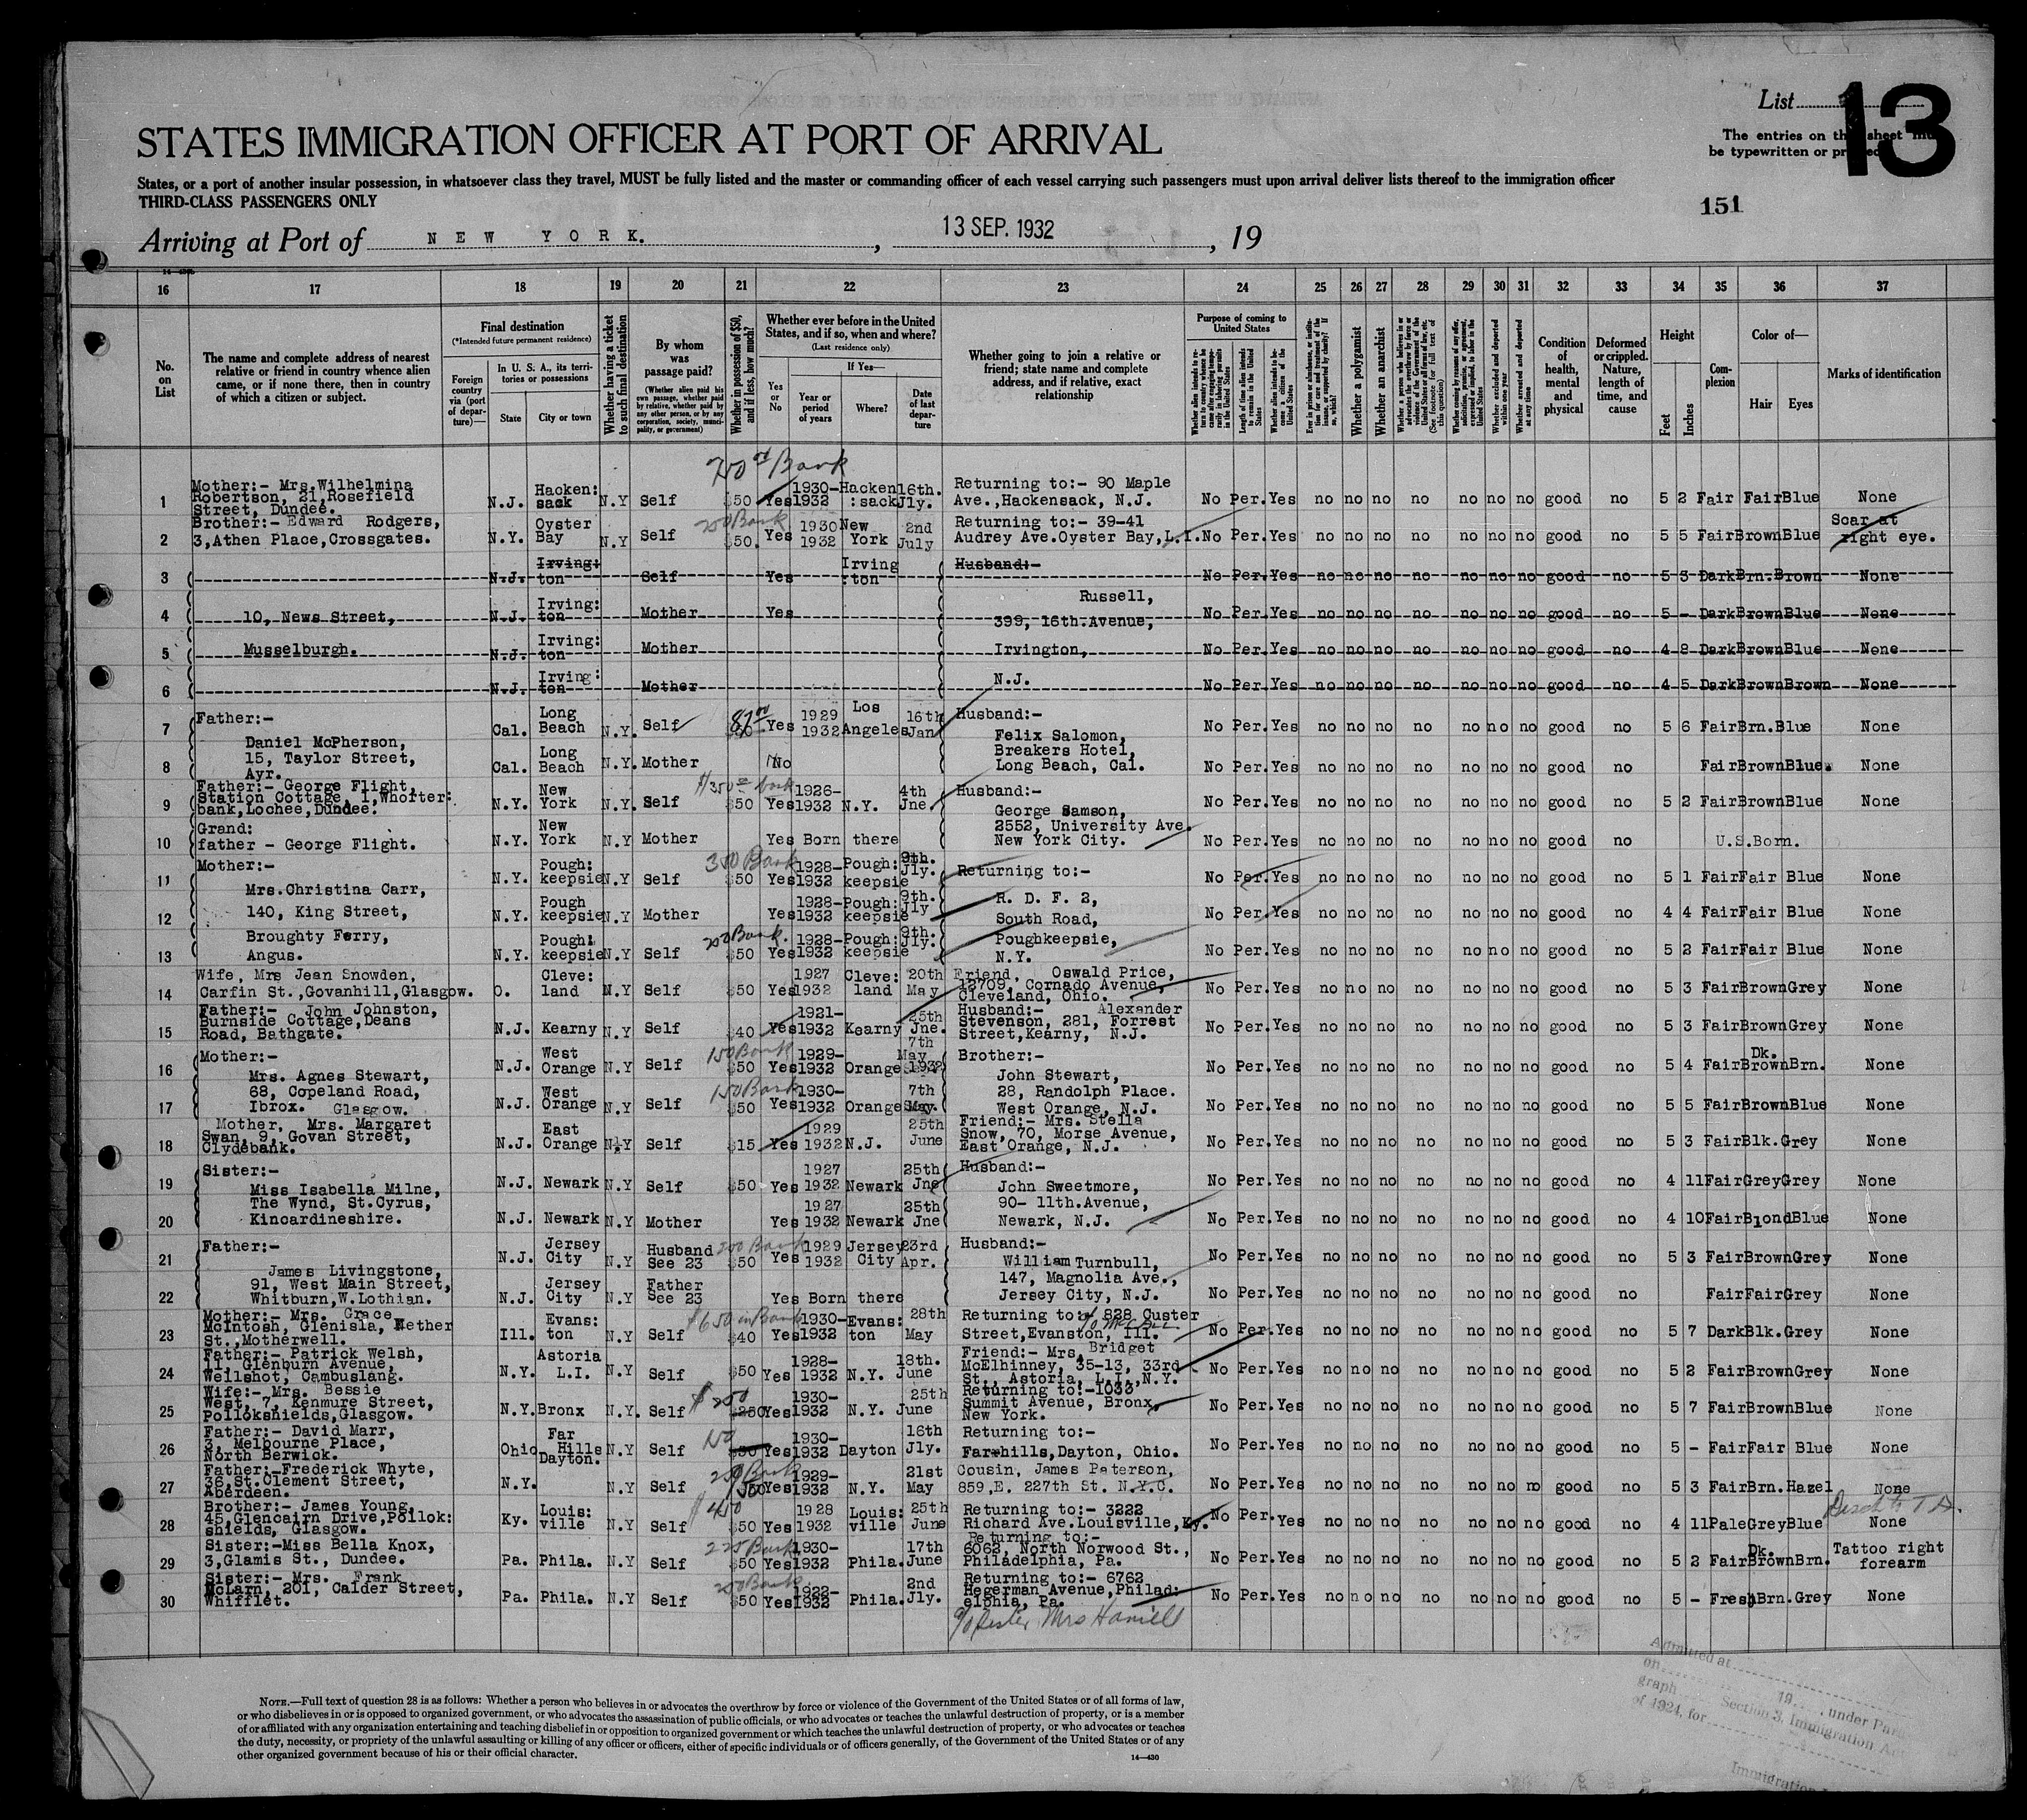 List
13
The entries on this sheet must
be typewritten or printed
151
STATES IMMIGRATION OFFICER AT PORT OF ARRIVAL
States, or a port of another insular possession, in whatsoever class they travel, MUST be fully listed and the master or commanding officer of each vessel carrying such passengers must upon arrival deliver lists thereof to the immigration officer
THIRD-CLASS PASSENGERS ONLY
Arriving at Port of NEW YORK. , 13 SEP. 1932 , 19
16 17 18 19 20 21 22 23 24 25 26 27 28 29 30 31 32 33 34 35 36 37
No. on List
The name and complete address of nearest relative or friend in country whence alien came, or if none there, then in country of which a citizen or subject.
Final destination
(*Intended future permanent residence)
Foreign country via (port of departure)—
In U. S. A., its territories or possessions
State City or town
Whether having a ticket to such final destination
By whom was passage paid?
(Whether alien paid his own passage, whether paid by relative, whether paid by any other person, or by any corporation, society, municipality, or government)
Whether in possession of $50, and if less, how much?
Whether ever before in the United States, and if so, when and where?
(Last residence only)
Yes or No
If Yes—
Year or period of years Where? Date of last departure
Whether going to join a relative or friend; state name and complete address, and if relative, exact relationship
Purpose of coming to United States
Whether a polygamist
Whether an anarchist
Condition of health, mental and physical
Deformed or crippled. Nature, length of time, and cause
Height
Feet Inches
Complexion
Color of—
Hair Eyes
Marks of identification
1 Mother:- Mrs.Wilhelmina Robertson, 21,Rosefield Street, Dundee. N.J. Hacken: sack N.Y Self $50 Yes 1930-1932 Hacken :sack 16th. Jly. Returning to:- 90 Maple Ave.,Hackensack, N.J. No Per. Yes no no no no no no no good no 5 2 Fair Fair Blue None
2 Brother:- Edward Rodgers, 3,Athen Place,Crossgates. N.Y. Oyster Bay N.Y Self 250 Bank $50. Yes 1930 1932 New York 2nd July Returning to:- 39-41 Audrey Ave.Oyster Bay,L.I. No Per. Yes no no no no no no no good no 5 5 Fair Brown Blue Scar at right eye.
3 N.J. Irving: ton Self Yes Irving :ton Husband:- No Per. Yes no no no no no no no good no 5 3 Dark Brn. Brown None
4 10, News Street, N.J. Irving: ton Mother Yes Russell, 399, 16th.Avenue, No Per. Yes no no no no no no no good no 5 - Dark Brown Blue None
5 Musselburgh. N.J. Irving: ton Mother Irvington, No Per. Yes no no no no no no no good no 4 8 Dark Brown Blue None
6 N.J. Irving: ton Mother N.J. No Per. Yes no no no no no no no good no 4 5 Dark Brown Brown None
7 Father:- Daniel McPherson, Cal. Long Beach N.Y. Self 87.00 Yes 1929 1932 Los Angeles 16th Jan Husband:- Felix Salomon, No Per. Yes no no no no no no no good no 5 6 Fair Brn. Blue None
8 15, Taylor Street, Ayr. Cal. Long Beach N.Y. Mother No Breakers Hotel, Long Beach, Cal. No Per. Yes no no no no no no no good no Fair Brown Blue. None
9 Father:- George Flight, Station Cottage, 1,Whorter: bank,Lochee,Dundee. N.Y. New York N.Y. Self $350 bank $50 Yes 1926-1932 N.Y. 4th Jne Husband:- George Samson, No Per. Yes no no no no no no no good no 5 2 Fair Brown Blue None
10 Grand: father - George Flight. N.Y. New York N.Y Mother Yes Born there 2552, University Ave. New York City. No Per. Yes no no no no no no no good no U.S.Born.
11 Mother:- Mrs.Christina Carr, N.Y. Pough: keepsie N.Y Self 350 Bank $50 Yes 1928-1932 Pough: keepsie 9th. Jly. Returning to:- No Per. Yes no no no no no no no good no 5 1 Fair Fair Blue None
12 140, King Street, N.Y. Pough keepsie N.Y Mother Yes 1928-1932 Pough: keepsie 9th. Jly R. D. F. 2, South Road, No Per. Yes no no no no no no no good no 4 4 Fair Fair Blue None
13 Broughty Ferry, Angus. N.Y. Pough: keepsie N.Y Self 200 Bank. $50 Yes 1928-1932 Pough: keepsie 9th. Jly. Poughkeepsie, N.Y. No Per. Yes no no no no no no no good no 5 2 Fair Fair Blue None
14 Wife, Mrs Jean Snowden, Carfin St.,Govanhill,Glasgow. O. Cleve: land N.Y Self $50 Yes 1927 1932 Cleve: land 20th May Friend, Oswald Price, 12709, Cornado Avenue, Cleveland, Ohio. No Per. Yes no no no no no no no good no 5 3 Fair Brown Grey None
15 Father:- John Johnston, Burnside Cottage,Deans Road, Bathgate. N.J. Kearny N.Y Self $40 Yes 1921-1932 Kearny 25th Jne. Husband:- Alexander Stevenson, 281, Forrest Street,Kearny, N.J. No Per. Yes no no no no no no no good no 5 3 Fair Brown Grey None
16 Mother:- Mrs. Agnes Stewart, N.J. West Orange N.Y Self 150 Bank $50 Yes 1929-1932 Orange 7th May 1932 Brother:- John Stewart, No Per. Yes no no no no no no no good no 5 4 Fair Dk. Brown Brn. None
17 68, Copeland Road, Ibrox. Glasgow. N.J. West Orange N.Y Self 150 Bank $50 Yes 1930-1932 Orange 7th May. 28, Randolph Place. West Orange, N.J. No Per. Yes no no no no no no no good no 5 5 Fair Brown Blue None
18 Mother, Mrs. Margaret Swan, 9, Govan Street, Clydebank. N.J. East Orange N.Y Self $15 Yes 1929 1932 N.J. 25th June Friend:- Mrs. Stella Snow, 70, Morse Avenue, East Orange, N.J. No Per. Yes no no no no no no no good no 5 3 Fair Blk. Grey None
19 Sister:- Miss Isabella Milne, N.J. Newark N.Y Self $50 Yes 1927 1932 Newark 25th Jne Husband:- John Sweetmore, No Per. Yes no no no no no no no good no 4 11 Fair Grey Grey None
20 The Wynd, St.Cyrus, Kincardineshire. N.J. Newark N.Y Mother Yes 1927 1932 Newark 25th Jne 90- 11th.Avenue, Newark, N.J. No Per. Yes no no no no no no no good no 4 10 Fair Blond Blue None
21 Father:- James Livingstone, N.J. Jersey City N.Y Husband See 23 200 Bank $50 Yes 1929 1932 Jersey City 23rd Apr. Husband:- William Turnbull, No Per. Yes no no no no no no no good no 5 3 Fair Brown Grey None
22 91, West Main Street, Whitburn,W.Lothian. N.J. Jersey City N.Y Father See 23 Yes Born there 147, Magnolia Ave., Jersey City, N.J. No Per. Yes no no no no no no no good no Fair Fair Grey None
23 Mother:- Mrs. Grace McIntosh, Glenisla, Nether St.,Motherwell. Ill. Evans: ton N.Y Self $650 in Bank $40 Yes 1930-1932 Evans: ton 28th May Returning to: 828 Custer Street,Evanston, Ill. No Per. Yes no no no no no no no good no 5 7 Dark Blk. Grey None
24 Father:- Patrick Welsh, 41, Glenburn Avenue, Wellshot, Cambuslang. N.Y. Astoria L.I. N.Y Self $50 Yes 1928-1932 N.Y. 18th. June Friend:- Mrs. Bridget McElhinney, 35-13, 33rd St., Astoria, L.I.,N.Y. No Per. Yes no no no no no no no good no 5 2 Fair Brown Grey None
25 Wife:- Mrs. Bessie West, 7, Kenmure Street, Pollokshields,Glasgow. N.Y. Bronx N.Y. Self $250 $250 Yes 1930-1932 N.Y. 25th June Returning to:-1033 Summit Avenue, Bronx, New York. No Per. Yes no no no no no no no good no 5 7 Fair Brown Blue None
26 Father:- David Marr, 3, Melbourne Place, North Berwick. Ohio Far Hills Dayton. N.Y Self 150 $50 Yes 1930-1932 Dayton 16th Jly. Returning to:- Farhills,Dayton, Ohio. No Per. Yes no no no no no no no good no 5 - Fair Fair Blue None
27 Father:-Frederick Whyte, 36,St.Clement Street, Aberdeen. N.Y. N.Y Self 250 Bank $50 Yes 1929-1932 N.Y. 21st May Cousin, James Paterson, 859,E. 227th St. N.Y.C. No Per. Yes no no no no no no no good no 5 3 Fair Brn. Hazel None
28 Brother:- James Young, 45,Glencairn Drive,Pollok: shields, Glasgow. Ky. Louis: ville N.Y Self $450 $50 Yes 1928 1932 Louis: ville 25th June Returning to:- 3222 Richard Ave.Louisville,Ky. No Per. Yes no no no no no no no good no 4 11 Pale Grey Blue None
29 Sister:-Miss Bella Knox, 3,Glamis St., Dundee. Pa. Phila. N.Y Self 225 Bank $50 Yes 1930-1932 Phila. 17th June Returning to:- 6062, North Norwood St., Philadelphia, Pa. No Per. Yes no no no no no no no good no 5 2 Fair Dk. Brown Brn. Tattoo right forearm
30 Sister:- Mrs. Frank McLarn, 201, Calder Street, Whifflet. Pa. Phila. N.Y Self 250 Bank $50 Yes 1922-1932 Phila. 2nd Jly. Returning to:- 6762 Hegerman Avenue,Philad: elphia, Pa. No Per. Yes no no no no no no no good no 5 - Fresh Brn. Grey None
c/o Sister Mrs
NOTE.—Full text of question 28 is as follows: Whether a person who believes in or advocates the overthrow by force or violence of the Government of the United States or of all forms of law,
or who disbelieves in or is opposed to organized government, or who advocates the assassination of public officials, or who advocates or teaches the unlawful destruction of property, or is a member
of or affiliated with any organization entertaining and teaching disbelief in or opposition to organized government or which teaches the unlawful destruction of property, or who advocates or teaches
the duty, necessity, or propriety of the unlawful assaulting or killing of any officer or officers, either of specific individuals or of officers generally, of the Government of the United States or of any
other organized government because of his or their official character.
14—430
Admitted at
on 19 , under Para
graph Section 3, Immigration Act
of 1924, for
Immigration